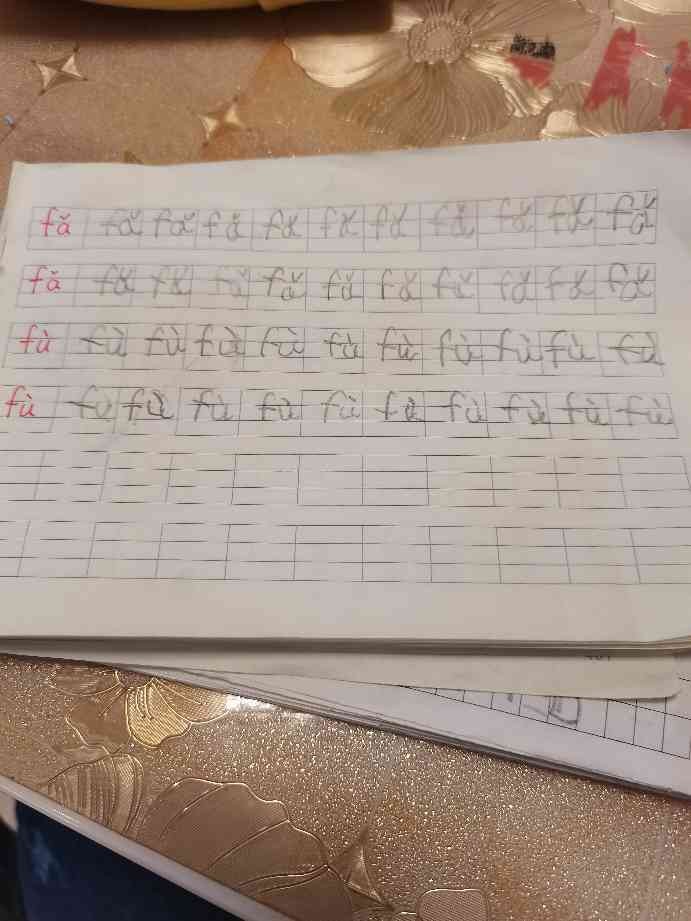 fǎ fǎ fǎ fǎ fǎ fǎ fǎ fǎ fǎ fǎ fǎ
fǎ fǎ fǎ fǎ fǎ fǎ fǎ fǎ fǎ fǎ fǎ
fù fù fù fù fù fù fù fù fù fù fù
fù fù fù fù fù fù fù fù fù fù fù